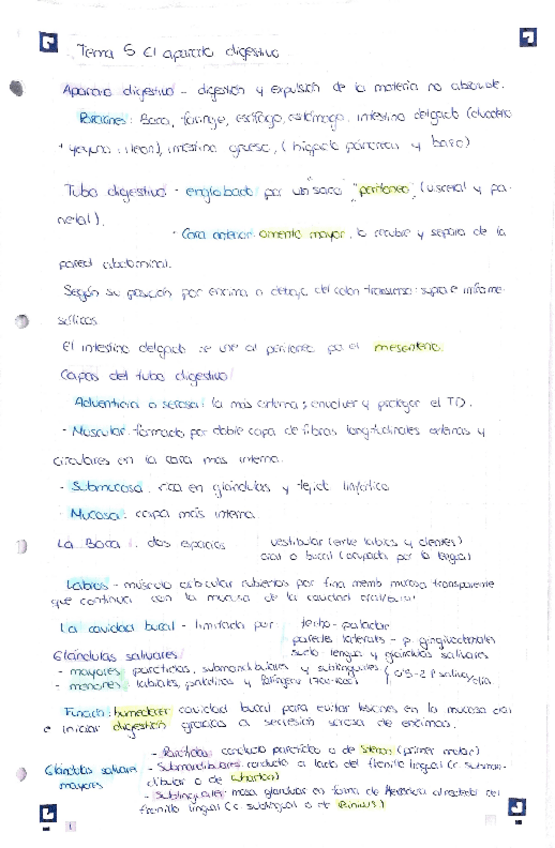 Tema 5 El aparato digestivo
Aparato digestivo - digestión y expulsión de la materia no absorbible.
Porciones: Boca, faringe, esófago, estómago, intestino delgado (duodeno
+ yeyuno ileon), intestino grueso, (hígado páncreas y bazo)
Tubo digestivo - englobado por un saco "peritoneo" (visceral y pa-
rietal).
- Cara anterior: omento mayor, lo recubre y separa de la
pared abdominal.
Según su posición por encima o debajo del colon transverso: supra e inframe-
sólicos
El intestino delgado se une al peritoneo por el mesenterio.
Capas del tubo digestivo
Adventicia o serosa: la más externa; envolver y proteger el TD.
- Muscular: formada por doble capa de fibras longitudinales externas y
circulares en la cara más interna.
- Submucosa: rica en glándulas y tejido linfático
- Mucosa: capa más interna
La Boca: dos espacios
vestibular (entre labios y dientes)
oral o bucal (ocupada por la lengua)
Labios - músculo orbicular cubiertos por fina memb mucosa transparente
que continua con la mucosa de la cavidad oral/bucal.
La cavidad bucal - limitada por
techo - paladar
paredes laterales - p. gingivectorales
suelo - lengua y glándulas salivares
Glándulas salivares
- mayores: parótidas, submandibulares y sublinguales
- menores: labiales, palatinas y
0'5-2 l saliva/día
Función: humedecer cavidad bucal para evitar lesiones en la mucosa oral
e iniciar digestión gracias a secreción serosa de enzimas.
Glándulas salivares
mayores
- Parótidas: conducto parotídeo o de Stenon (primer molar)
- Submandibulares: conducto a lado del frenillo lingual (c. subman-
dibular o de Wharton)
- Sublinguales: masa glandular en forma de herradura alrededor del
frenillo lingual (c. sublingual o de Rivinus)
1